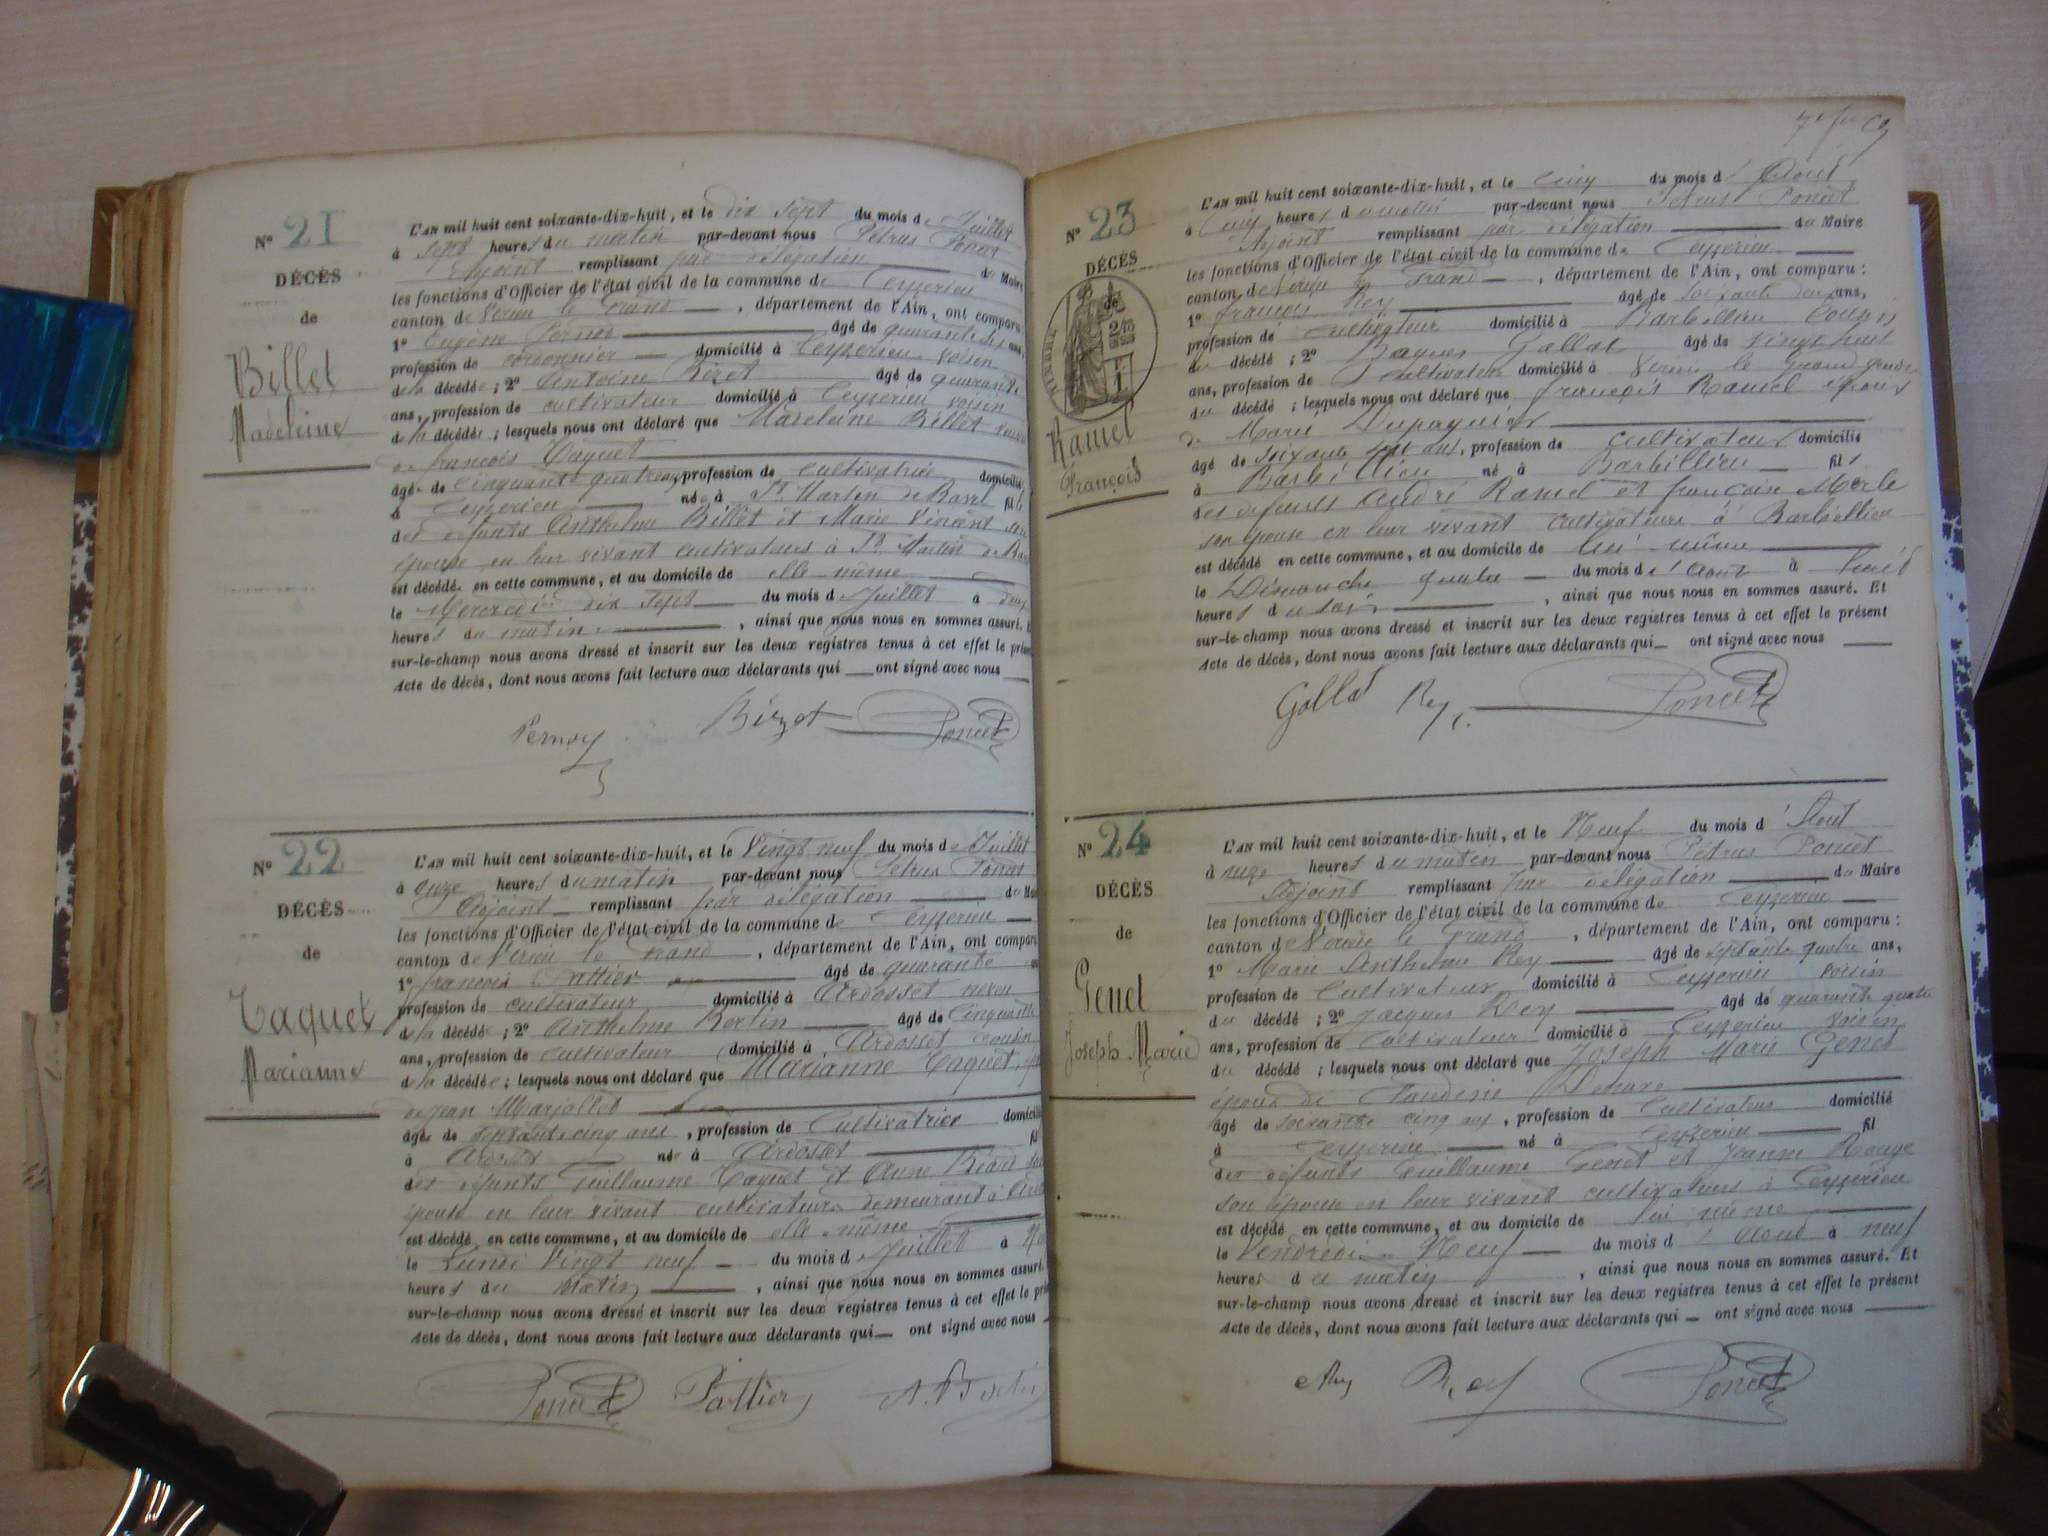 N° 21
DÉCÈS
de
Billet
Madeleine
L'AN mil huit cent soixante-dix-huit, et le dix sept du mois de Juillet
à sept heures du matin par-devant nous Pétrus Poncet
Adjoint remplissant par délégation du Maire
les fonctions d'Officier de l'état civil de la commune de Ceyzerieu
canton de Virieu le Grand, département de l'Ain, ont comparu
1° Eugène âgé de quarante six ans,
profession de domicilié à Ceyzerieu voisin
de la décédée; 2° Antoine Bizet âgé de quarante
ans, profession de cultivateur domicilié à Ceyzerieu voisin
de la décédée; lesquels nous ont déclaré que Madeleine Billet veuve
de françois Taquet
âgée de Cinquante quatre ans, profession de cultivatrice domicilié
à Ceyzerieu née à St Martin de Bavel fille
des défunts Anthelme Billet et Marie Vincent son
épouse en leur vivant cultivateurs à St Martin de Ba
est décédée en cette commune, et au domicile de elle même
le Mercredi dix sept du mois de Juillet à deux
heures du matin, ainsi que nous nous en sommes assuré. E
sur-le-champ nous avons dressé et inscrit sur les deux registres tenus à cet effet le prése
Acte de décès, dont nous avons fait lecture aux déclarants qui ont signé avec nous
Bizet Poncet
N° 22
DÉCÈS
de
Taquet
Marianne
L'AN mil huit cent soixante-dix-huit, et le Vingt neuf du mois de Juillet
à onze heures du matin par-devant nous Pétrus Poncet
Adjoint remplissant par délégation du Ma
les fonctions d'Officier de l'état civil de la commune de Ceyzerieu
canton de Virieu le Grand, département de l'Ain, ont compar
1° françois Pattier âgé de quarante
profession de cultivateur domicilié à Ardosset neveu
de la décédée; 2° Anthelme Bertin âgé de Cinquante
ans, profession de cultivateur domicilié à Ardosset cousin
de la décédée; lesquels nous ont déclaré que Marianne Taquet
de Jean Marjollet
âgée de septante cinq ans, profession de Cultivatrice domicilié
à Ardosset née à Ardosset fil
des défunts Guillaume Taquet et Anne Béard son
épouse en leur vivant cultivateurs demeurant à
est décédée en cette commune, et au domicile de elle même
le Lundi Vingt neuf du mois de Juillet à
heures du matin, ainsi que nous nous en sommes assuré.
sur-le-champ nous avons dressé et inscrit sur les deux registres tenus à cet effet le pré
Acte de décès, dont nous avons fait lecture aux déclarants qui ont signé avec nous
Poncet Pattier
N° 23
DÉCÈS
de
TIMBRE
Ramel
François
L'AN mil huit cent soixante-dix-huit, et le Cinq du mois d'Août
à Cinq heures du matin par-devant nous Pétrus Poncet
Adjoint remplissant par délégation du Maire
les fonctions d'Officier de l'état civil de la commune de Ceyzerieu
canton de Virieu le Grand, département de l'Ain, ont comparu:
1° François Rey âgé de soixante deux ans,
profession de cultivateur domicilié à Barbillieu Cousin
du décédé; 2° Gallat âgé de vingt huit
ans, profession de cultivateur domicilié à Virieu le Grand gendre
du décédé; lesquels nous ont déclaré que françois Ramel époux
de Marie
âgé de soixante sept ans, profession de cultivateur domicilié
à Barbillieu né à Barbillieu fils
des défunts André Ramel et françoise Merle
son épouse en leur vivant cultivateurs à Barbillieu
est décédé en cette commune, et au domicile de lui même
le Dimanche quatre du mois d'Août à
heures du soir, ainsi que nous nous en sommes assuré. Et
sur-le-champ nous avons dressé et inscrit sur les deux registres tenus à cet effet le présent
Acte de décès, dont nous avons fait lecture aux déclarants qui ont signé avec nous
Gallat Rey Poncet
N° 24
DÉCÈS
de
Genet
Joseph Marie
L'AN mil huit cent soixante-dix-huit, et le Neuf du mois d'Août
à onze heures du matin par-devant nous Pétrus Poncet
Adjoint remplissant par délégation du Maire
les fonctions d'Officier de l'état civil de la commune de Ceyzerieu
canton de Virieu le Grand, département de l'Ain, ont comparu:
1° Marie Anthelme Rey âgé de septante quatre ans,
profession de Cultivateur domicilié à Ceyzerieu voisin
du décédé; 2° Jacques Rey âgé de quarante quatre
ans, profession de Cultivateur domicilié à Ceyzerieu voisin
du décédé; lesquels nous ont déclaré que Joseph Marie Genet
époux de Claudine
âgé de soixante cinq ans, profession de Cultivateur domicilié
à Ceyzerieu né à Ceyzerieu fil
des défunts Guillaume Genet et Jeanne Rouge
son épouse en leur vivant cultivateurs à Ceyzerieu
est décédé en cette commune, et au domicile de lui même
le Vendredi Neuf du mois d'Août à neuf
heures du matin, ainsi que nous nous en sommes assuré. Et
sur-le-champ nous avons dressé et inscrit sur les deux registres tenus à cet effet le présent
Acte de décès, dont nous avons fait lecture aux déclarants qui ont signé avec nous
Rey Poncet